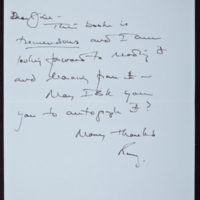 This book is
tremendous and I am
looking forward to reading it
and learning from it -
May I ask you
you to autograph it?
Many thanks